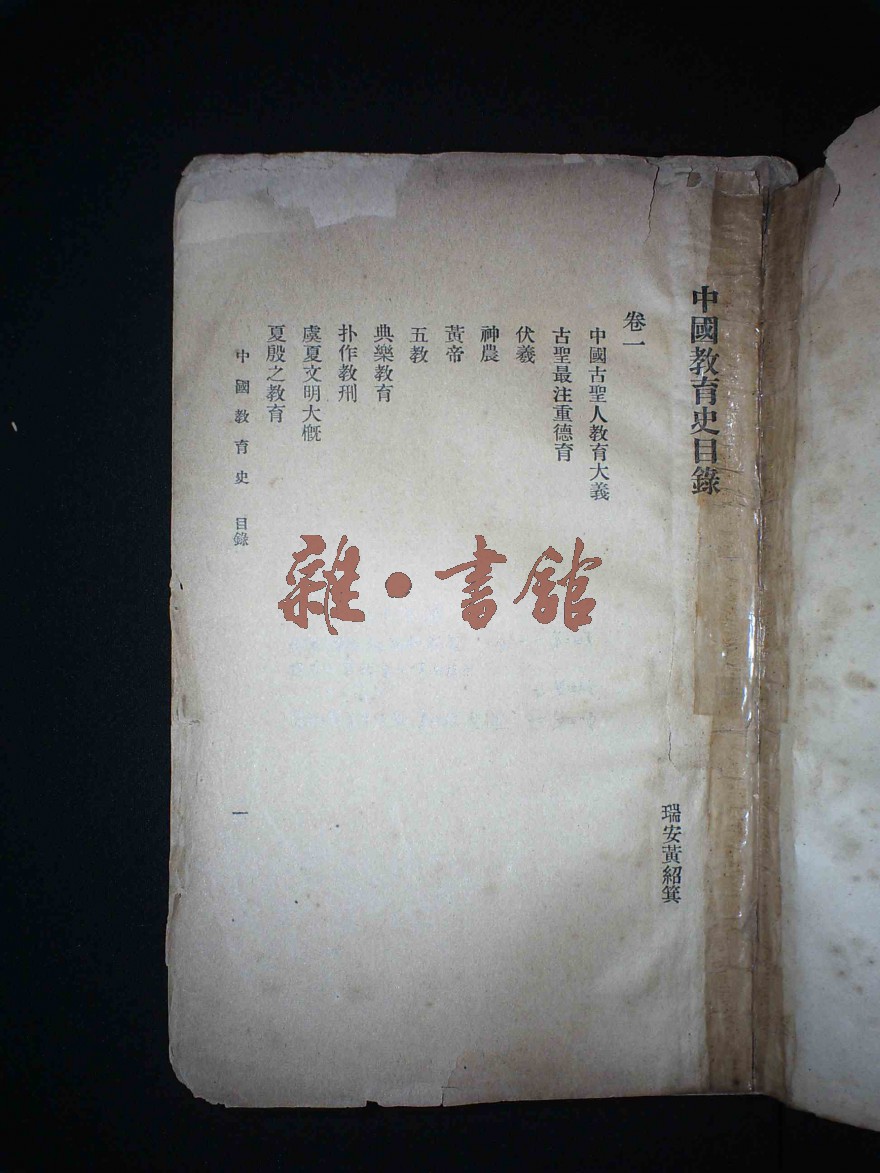 中國教育史目錄
瑞安黃紹箕
卷一
中國古聖人教育大義
古聖最注重德育
伏羲
神農
黃帝
五教
典樂教育
扑作教刑
虞夏文明大概
夏殷之教育
中國教育史 目錄
一
雜·書館